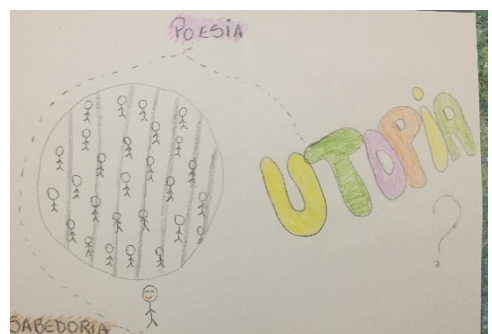 POESIA
UTOPIA
?
SABEDORIA